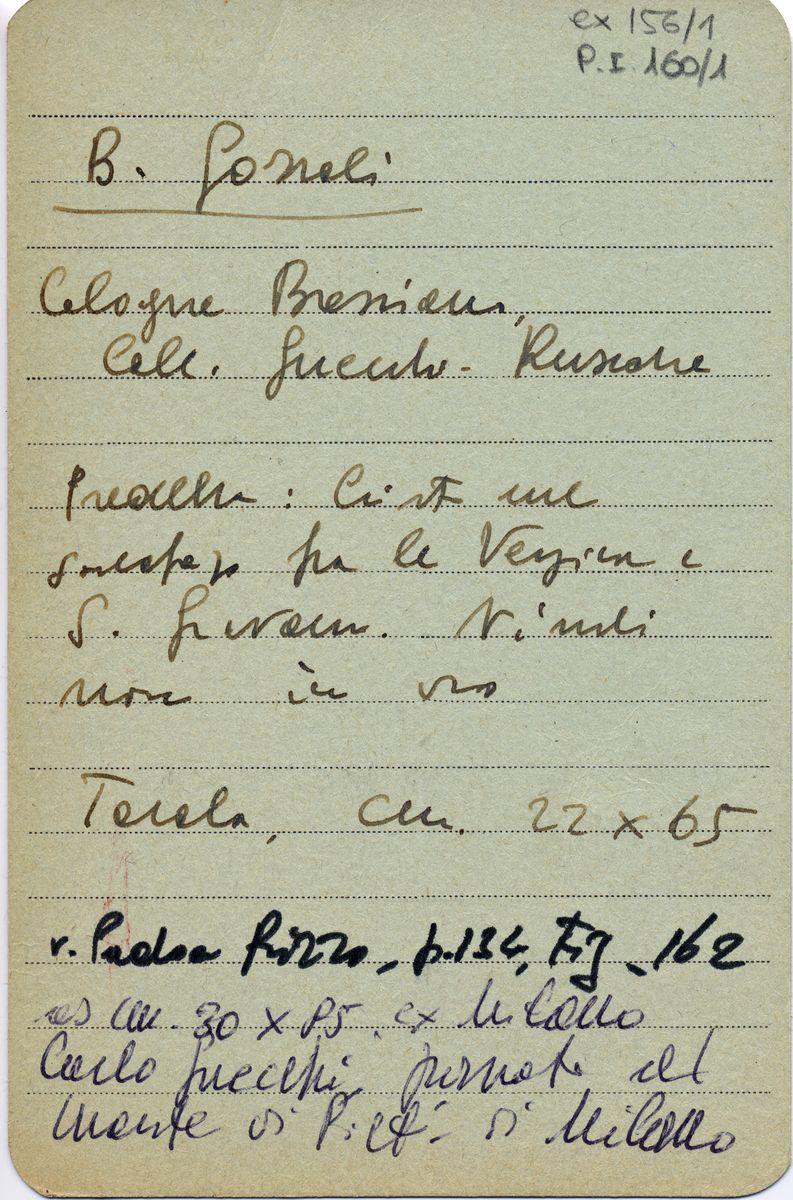 ex 156/1
P.I. 160/1
B. Gozzoli
Cologne Bresciano,
Coll. Gnecchi - Rusconi
Predella: Cristo nel
fra la Vergine e
S. Giovanni.
non in vso
Tavola, cm. 22 x 65
v. Padoa Rizzo, p. 134, Fig. 162
cm. 30 x 85, ex Milano
Carlo Gnecchi, al
Monte di Pietà di Milano